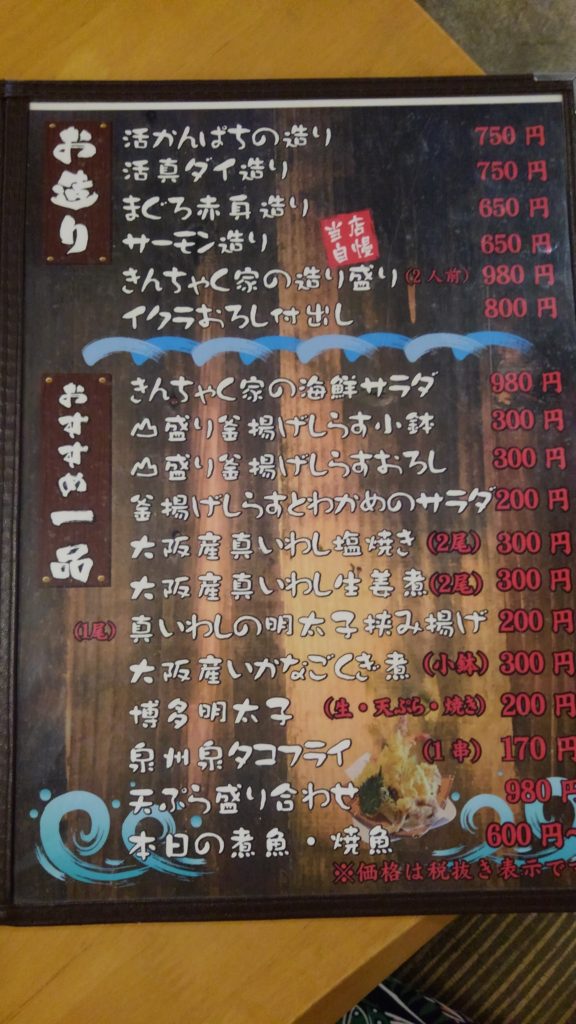 お造り
活かんぱちの造り 750円
活真ダイ造り 750円
まぐろ赤身造り 650円
サーモン造り 650円
当店自慢
きんちゃく家の造り盛り(2人前) 980円
イクラおろし付出し 800円
おすすめ一品
きんちゃく家の海鮮サラダ 980円
山盛り釜揚げしらす小鉢 300円
山盛り釜揚げしらすおろし 300円
釜揚げしらすとわかめのサラダ 200円
大阪産真いわし塩焼き(2尾) 300円
大阪産真いわし生姜煮(2尾) 300円
(1尾)真いわしの明太子挟み揚げ 200円
大阪産いかなごくぎ煮(小鉢) 300円
博多明太子(生・天ぷら・焼き) 200円
泉州泉タコフライ(1串) 170円
天ぷら盛り合わせ 980円
本日の煮魚・焼魚 600円~
※価格は税抜き表示で